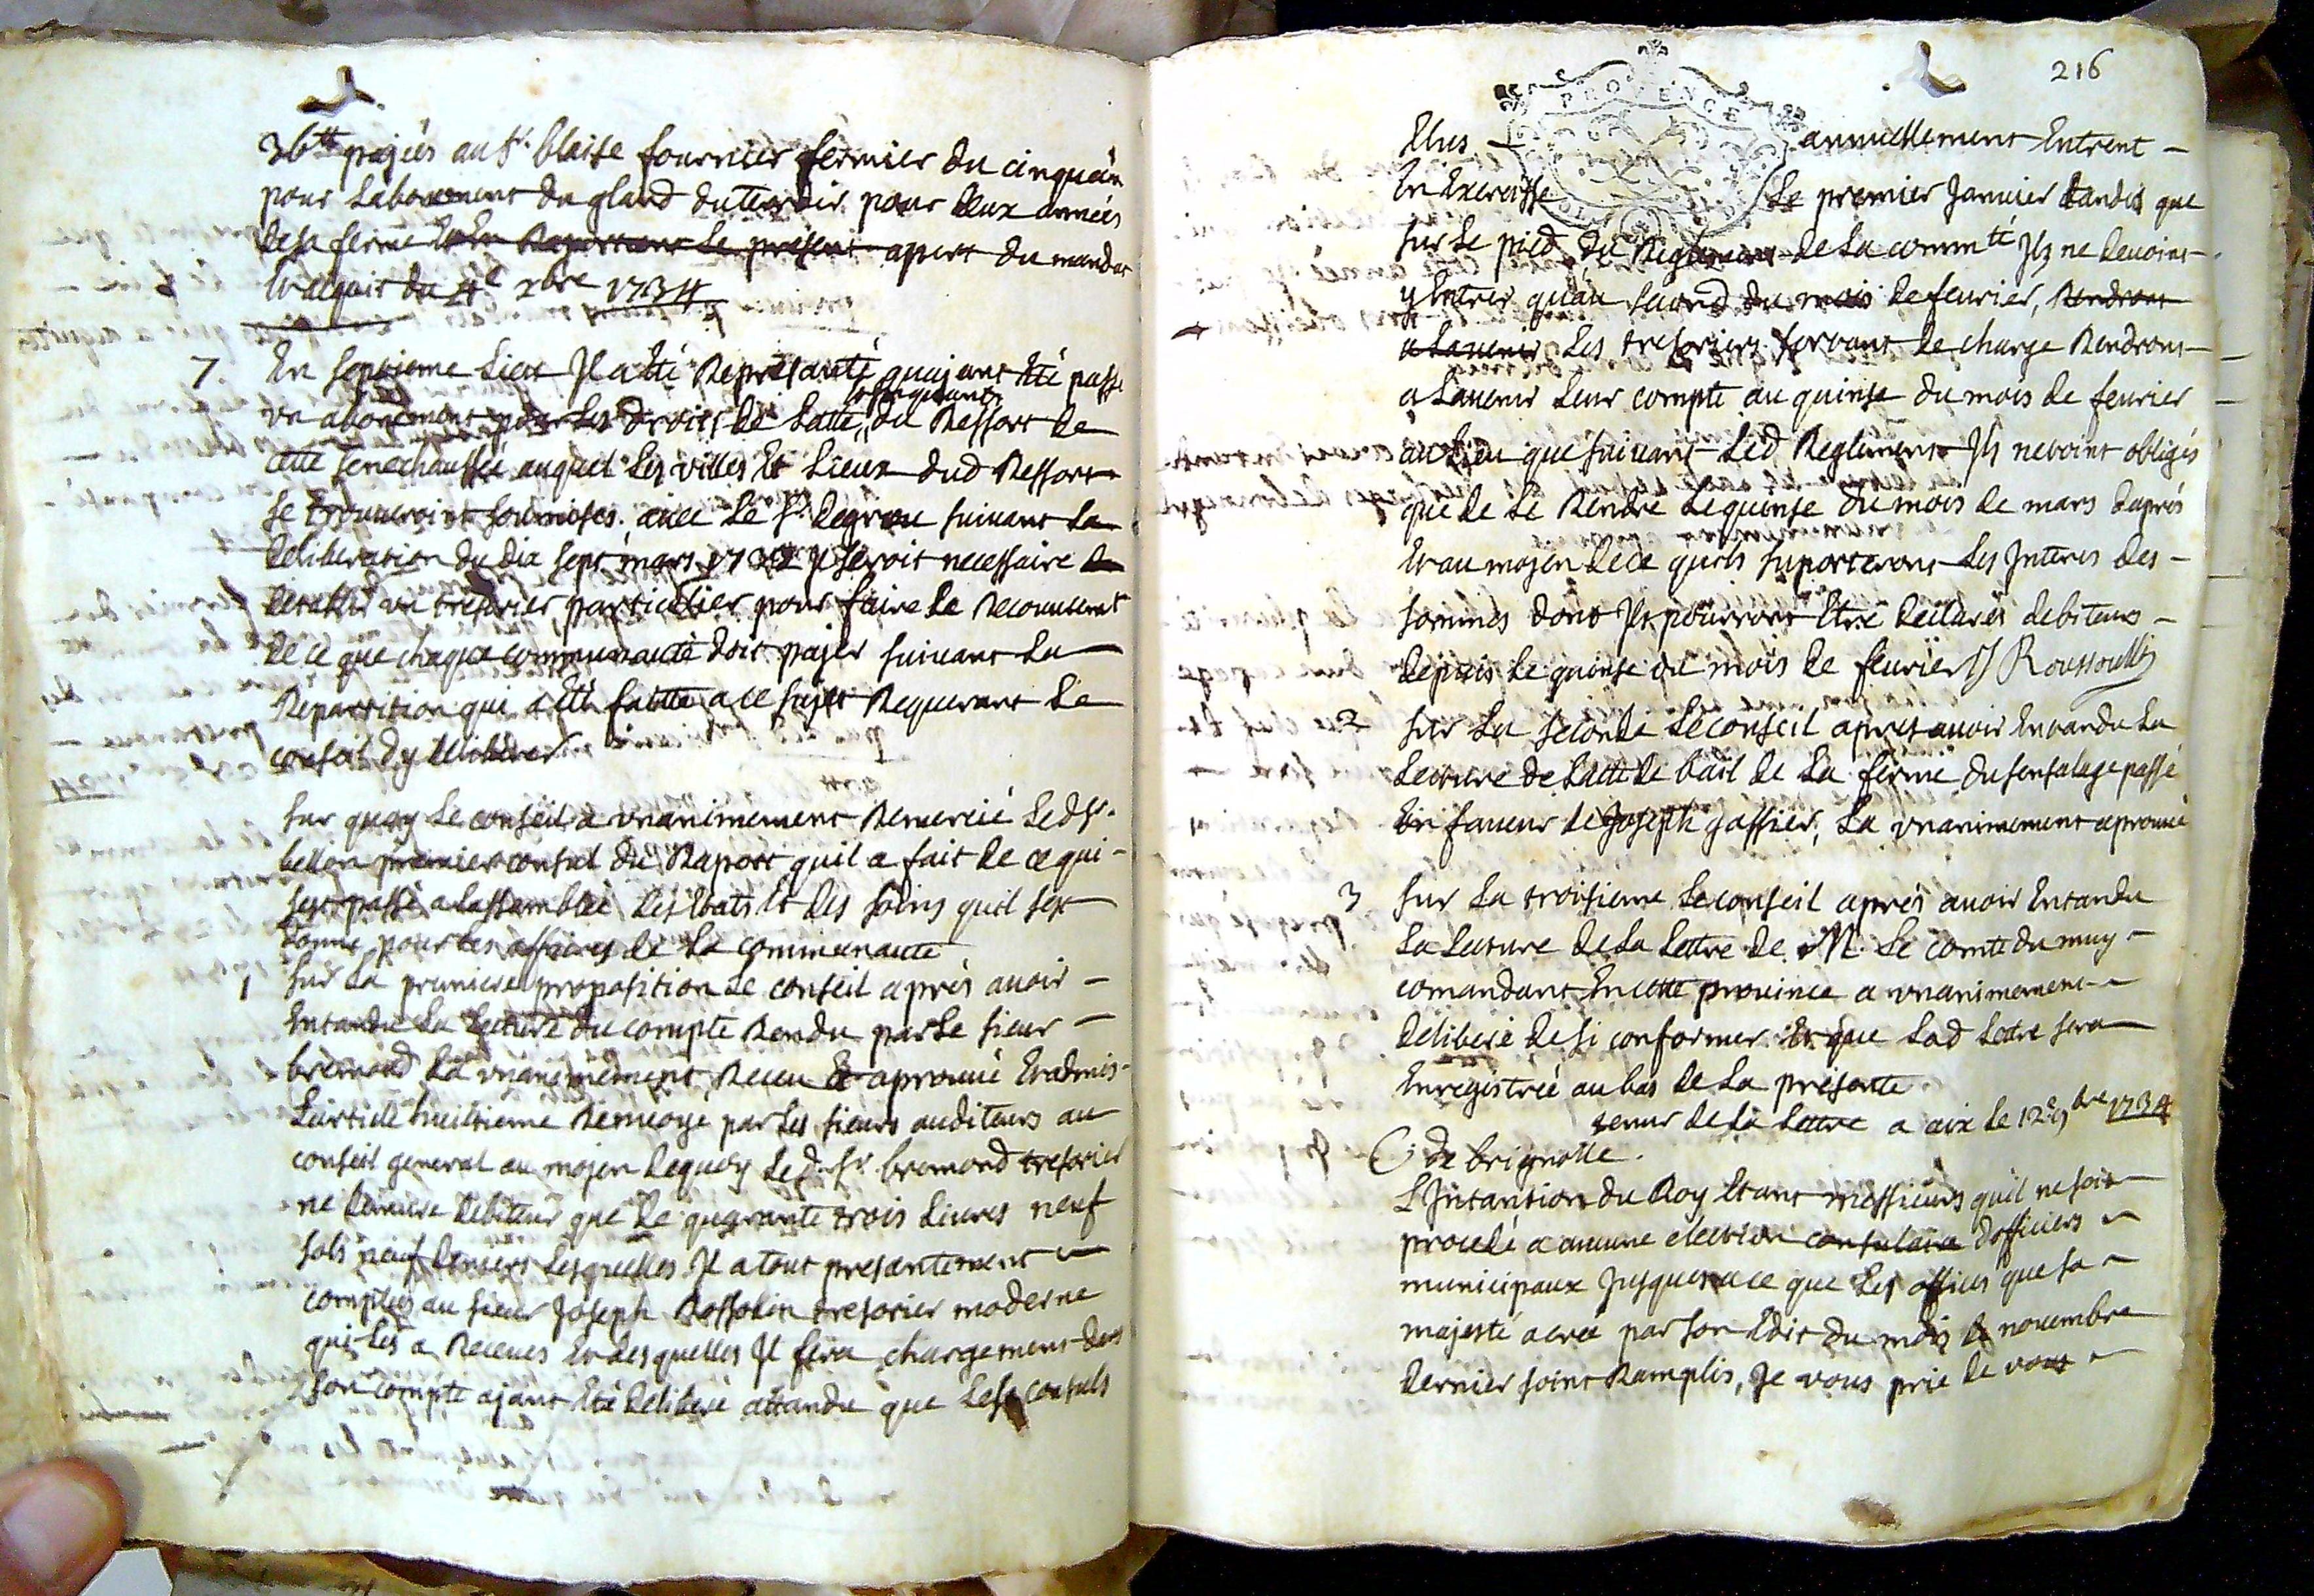 36tt payées au sr. blaise fournier fermier du cinquain
pour Labonement du gland du terroir pour deux années
de sa ferme Et En Raportant Le present apert du mandat
Et aquit du 4e xbre 1734
7 En septieme Lieu Il a Eté Represanté quajant Eté passé
offrequarant
vn abonement pour Les droits de Latte du Ressort de
cette senechaussée auquel Les villes Et Lieux dud Ressort
se trouveroint soumises avec Le sr. degrou suivant La
deliberation du dix sept mars Il seroit necessaire de
destablir un tresorier particulier pour faire Le Recouvrement
de ce que chaque communauté doit payer suivant La
Repartition qui a Eté faitte a ce sujet Requerant Le
conseil dy deliberer
sur quoy Le conseil a vnanimement Remercié Led sr.
bellon premier consul du Raport quil a fait de ce qui
sest passé a Lassamblée des Etats Et des soins quil sest
donné pour Les affaires de La communauté
1 sur La premiere proposition Le conseil après avoir
Entandu La Lecture du compte Rendu par Le sieur
bremond La vnanimement Receu Et aprouvé Et admis
Larticle huitieme Renvoyé par Les sieurs auditeurs au
conseil general au moyen dequoy Led sr. bremond tresorier
ne demeure debiteur que de quarante trois Livres neuf
sols neuf deniers Lesquelles Il a tout presantement
comptés au sieur Joseph Rossolin tresorier moderne
qui Les a Receues Et desquelles Il fera chargement dans
son compte ajant Eté deliberé attandu que Les consuls
216
PROVENCE
Elus annuellement Entrent
En Exercisse Le premier Janvier tandis que
sur Le pied du Reglement de La commté Ils ne devoint
y Entrer quau second du mois de fevrier, Rendront
a Lavenir Les tresoriers sortant de charge Rendront
a Lavenir Leur compte au quinse du mois de fevrier
au Lieu que suivant Led Reglement Ils netoint obligés
que de Le Rendre Le quinse du mois de mars daprés
Et au moyen de ce quils suporterons Les Interes des
sommes dont Ils pourront Etre declarés debiteurs
depuis Le quinse du mois de fevrier
2 sur La seconde Le conseil apres avoir Entandu La
Lecture de Lacte de bail de La ferme du sensalage passé
En faveur de Joseph gassier, La vnanimement aprouvé
3 sur La troisieme Le conseil après avoir Entandu
La Lecture de La Lettre de M. Le comte du muy
comandant En cette province a vnanimement
deliberé de si conformer Et que Lad Lettre sera
Enregistrée au bas de La présante
tenur de La Lettre a aix Le 12e 9bre 1734
C. de brignolle.
L Intantion du Roy Etant messieurs quil ne soit
procedé a aucune election consulaire dofficiers
municipaux Jusques a ce que Les offices que sa
majesté a créé par son Edit du mois de novembre
dernier soint Ramplis, Je vous prie de vous